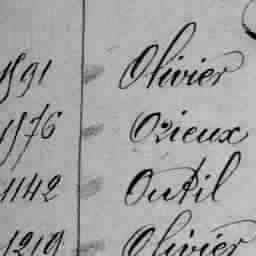 1591 Olivier
1576 Ozieux
1142 Outil
1219 Olivier